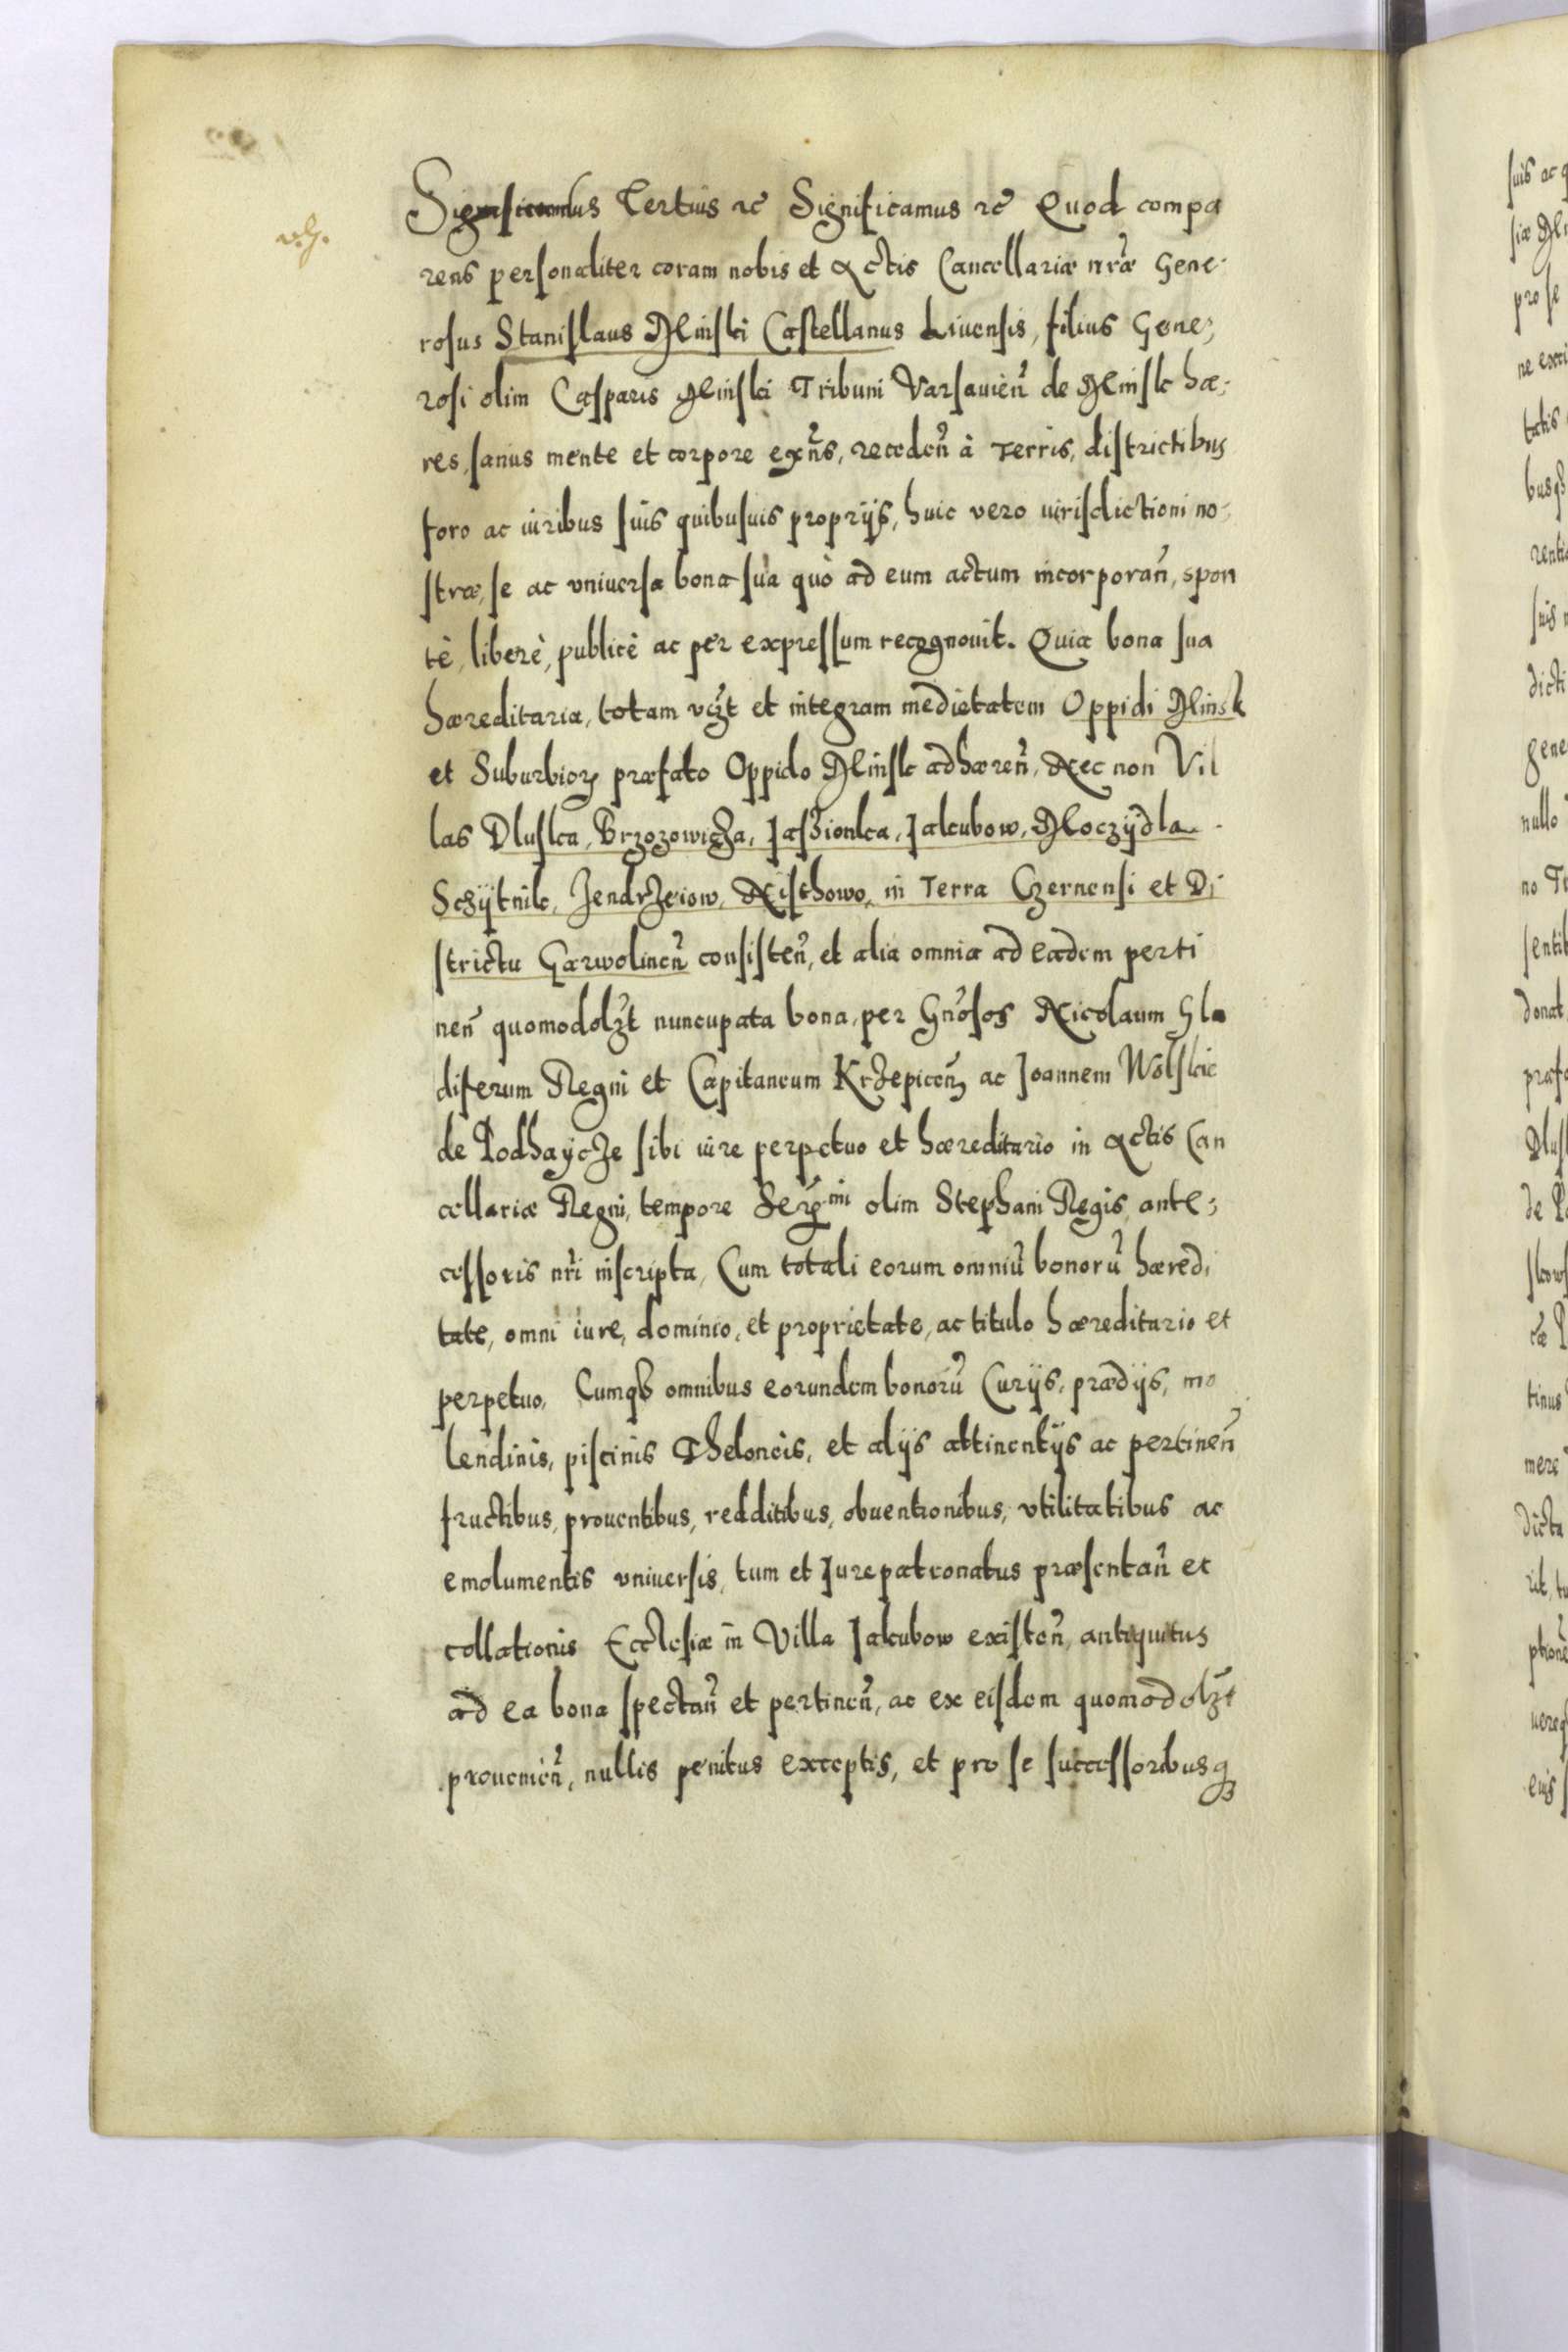 Sigismundus Tertius etc Significamus etc Quod compa
rens personaliter coram nobis et Actis Cancellariæ nræ Gene-
rosus Stanislaus Minski Castellanus Liuensis, filius Gene-
rosi olim Casparis Minski Tribuni Varsauień de Minsk hæ-
res, sanus mente et corpore exñs, recedeń à Terris, districtibus
foro ac iuribus suis quibusuis proprijs, huic vero iurisdictioni no-
stræ, se ac vniuersa bona sua quò ad eum actum incorporań, spon
tè, liberè, publicè ac per expressum recognouit. Quia bona sua
hæreditaria, totam vczt et integram medietatem Oppidi Minsk
et Suburbiorꝝ præfato Oppido Minsk adhæreń, Nec non Vil
las Dluska, Brzozowicza, Jaszionka, Jakubow, Moczydla
Sczytnik, Jendrzeiow, Nischowo, in Terra Czernensi et Di
strictu Garwolineń consisteń, et alia omnia ad eadem perti
neń quomodolzt nuncupata bona, per Gnosos Nicolaum Gla
diferum Regni et Capitaneum Krzepiceń ac Joannem Wolskie
de Podhaycze sibi iure perpetuo et hæreditario in Actis Can
cellariæ Regni, tempore Sermi olim Stephani Regis ante-
cessoris nri inscripta, Cum totali eorum omniū bonorū hæredi
tate, omni iure, dominio, et proprietate, ac titulo hæreditario et
perpetuo, Cumqꝫ omnibus eorundem bonorū Curijs, prædijs, mo
lendinis, piscinis Theloneis, et alijs attinentijs ac pertineń
fructibus, prouentibus, redditibus, obuentionibus, vtilitatibus ac
emolumentis vniuersis, tum et Jurepatronatus præsentań et
collationis Ecclesiæ in Villa Jakubow existeń, antiquitus
ad ea bona spectań et pertineń, ac ex eisdem quomodolzt
prouenień, nullis penitus exceptis, et pro se successoribusqꝫ